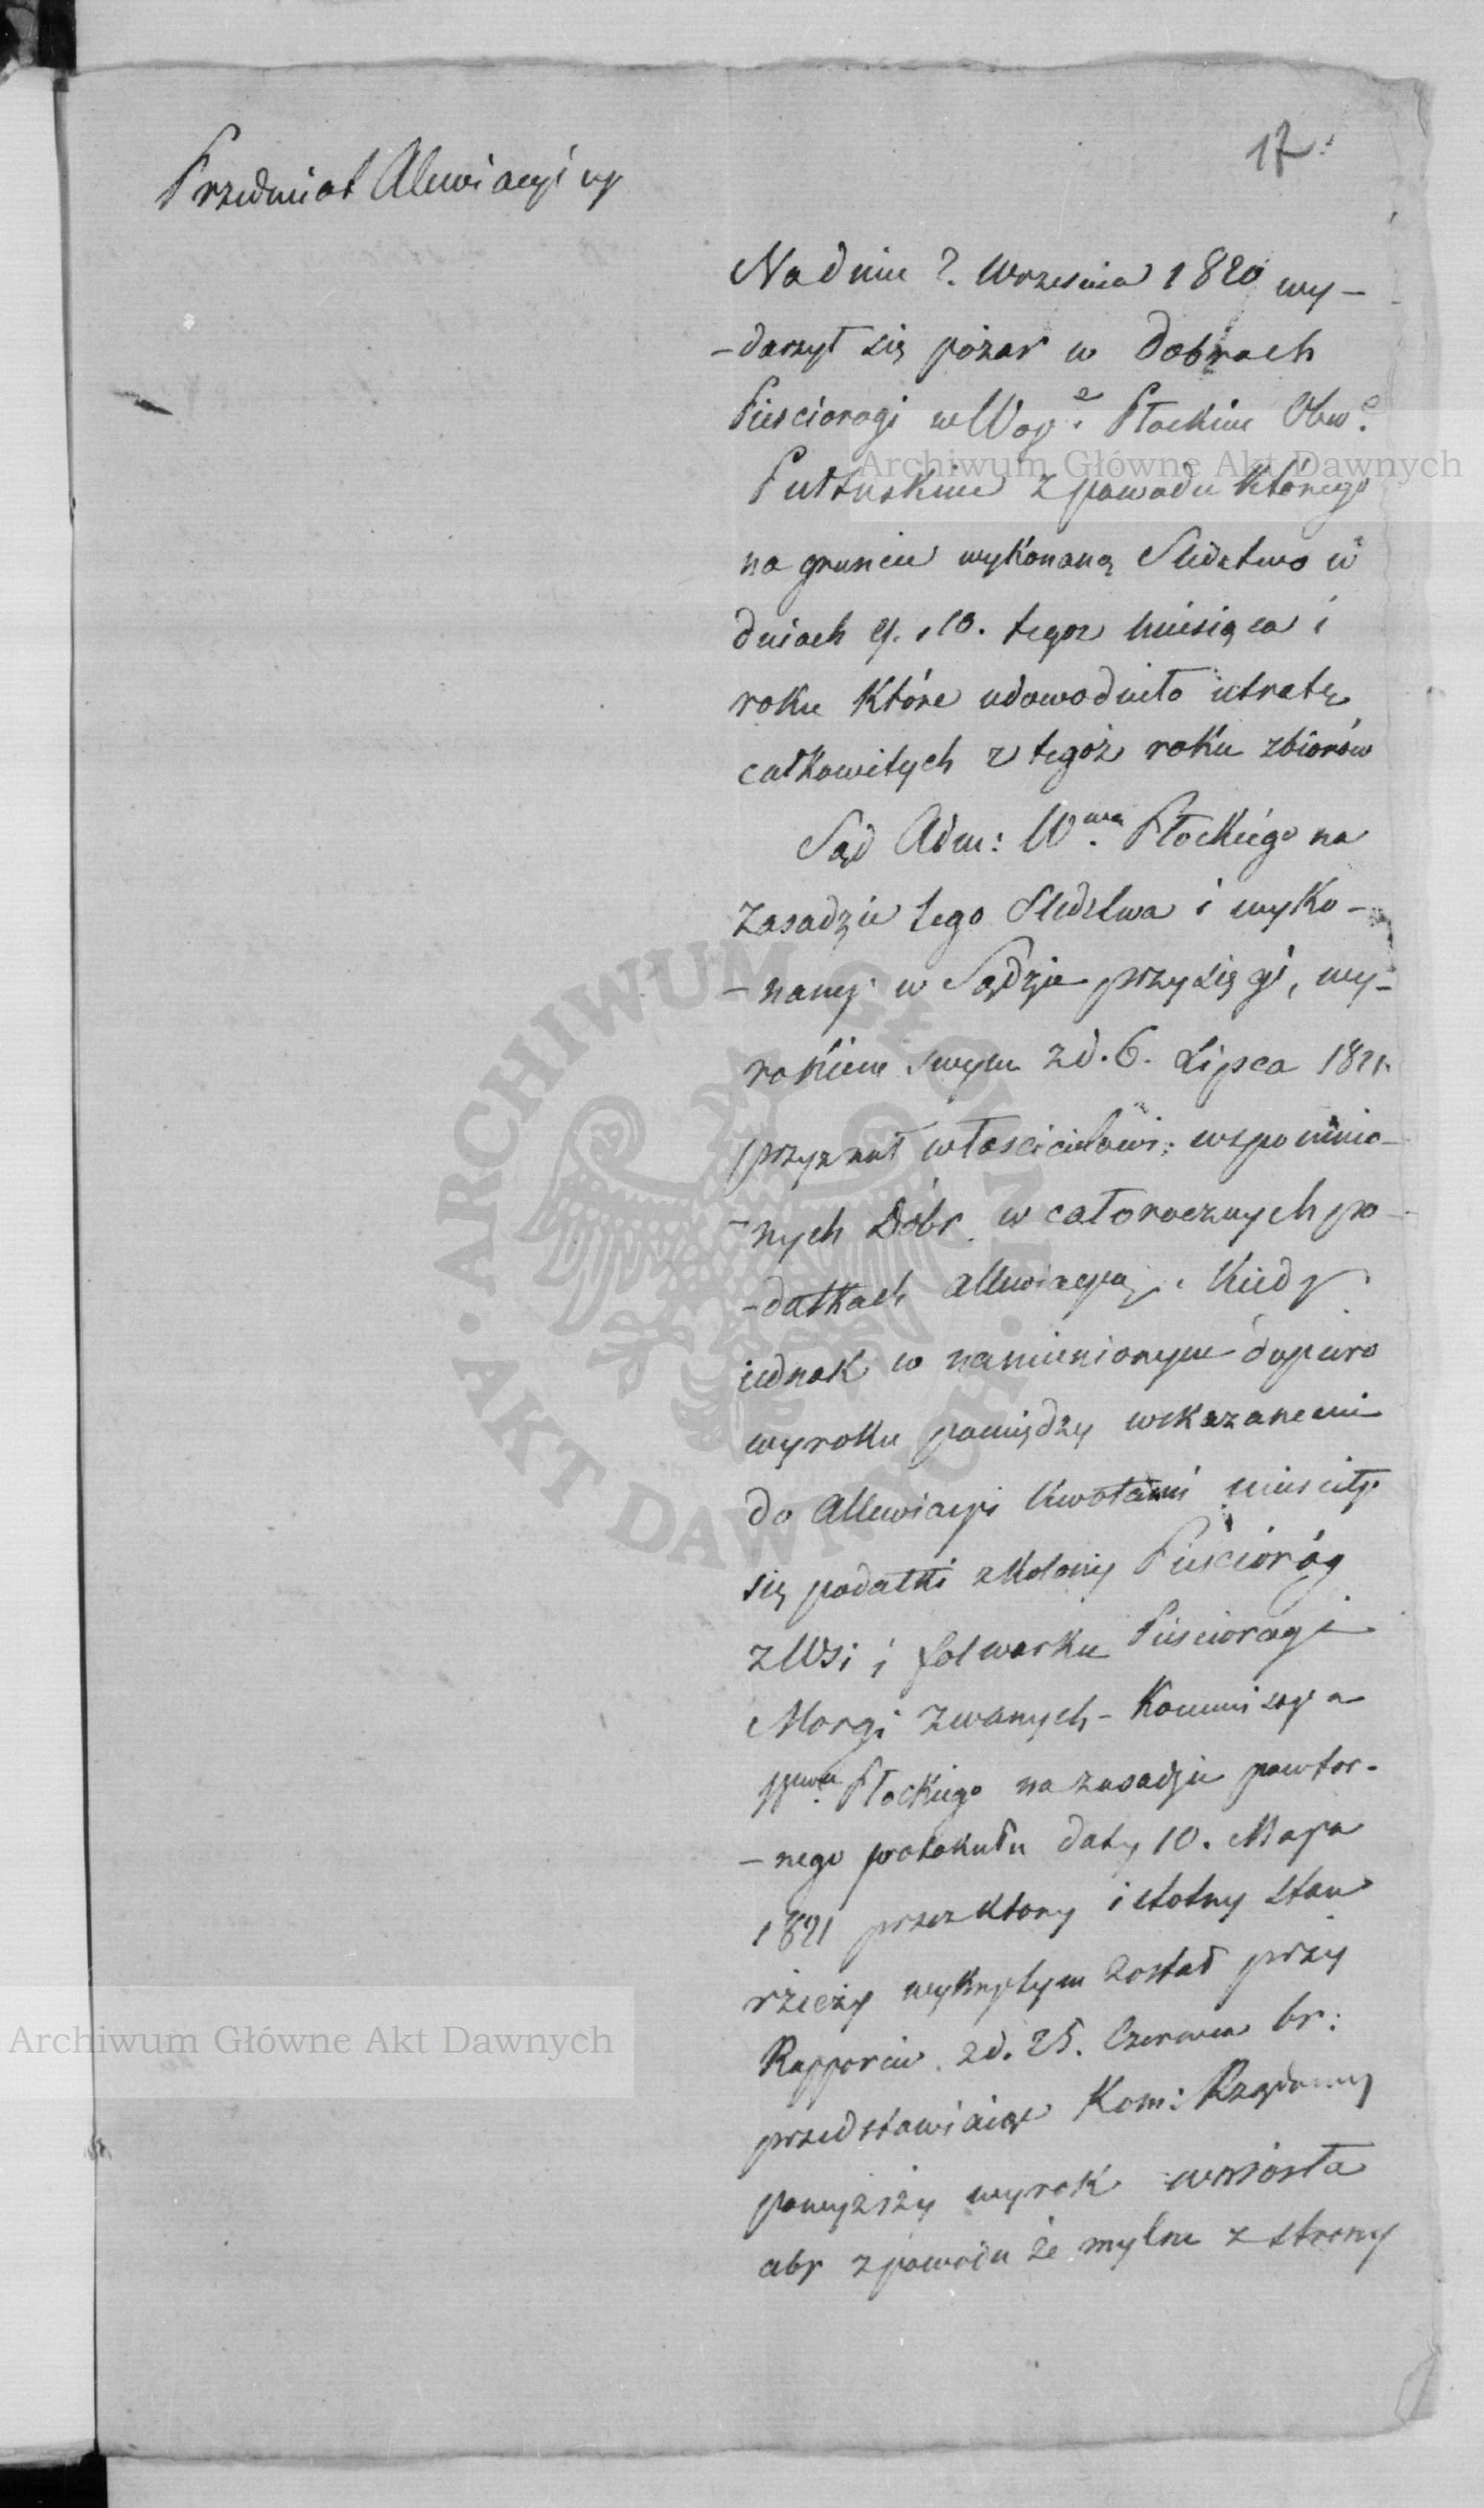 17.
Przedmiot Alewiacyiny
Na dniu 2. Września 1820 wy-
-darzył się pożar w Dobrach
Pieściorogi w Woy.e Płockim Obw.e
Pułtuskim z powodu którego
na gruncie wykonaną Sledztwo w
dniach 9. i 10. tegoż miesiąca i
roku które udowodniło utratę
całkowitych z tegoż roku zbiorów
Sąd Adm: W.wa Płockiego na
zasadzie tego Sledztwa i wyko-
-naney w Sądzie przysięgi, wy-
rokiem swym z d. 6. Lipca 1821.
przyznał właścicielowi wspomnio-
-nych Dóbr w całorocznych po-
-datkach allewiacyą. Kiedy
iednak w namienionym dopiero
wyroku pomiędzy wskazanemi
do allewiacyi kwotami mieściły
się podatki z kolony Pieścioróg
z Wsi i folwarku Pieściorogi
Morgi zwanych - Kommissya
Wwa Płockiego na zasadzie powtor-
-nego protokułu daty 10. Maja
1821 przez ktory istotny stan
rzeczy wykrytym został przy
Rapporcie z d. 25. Czerwca br:
przedstawiaiąc Kom: Rządowey
powyższy wyrok wniosła
aby z powodu że mylne z strony
Archiwum Główne Akt Dawnych
ARCHIWUM GŁÓWNE AKT DAWNYCH
Archiwum Główne Akt Dawnych